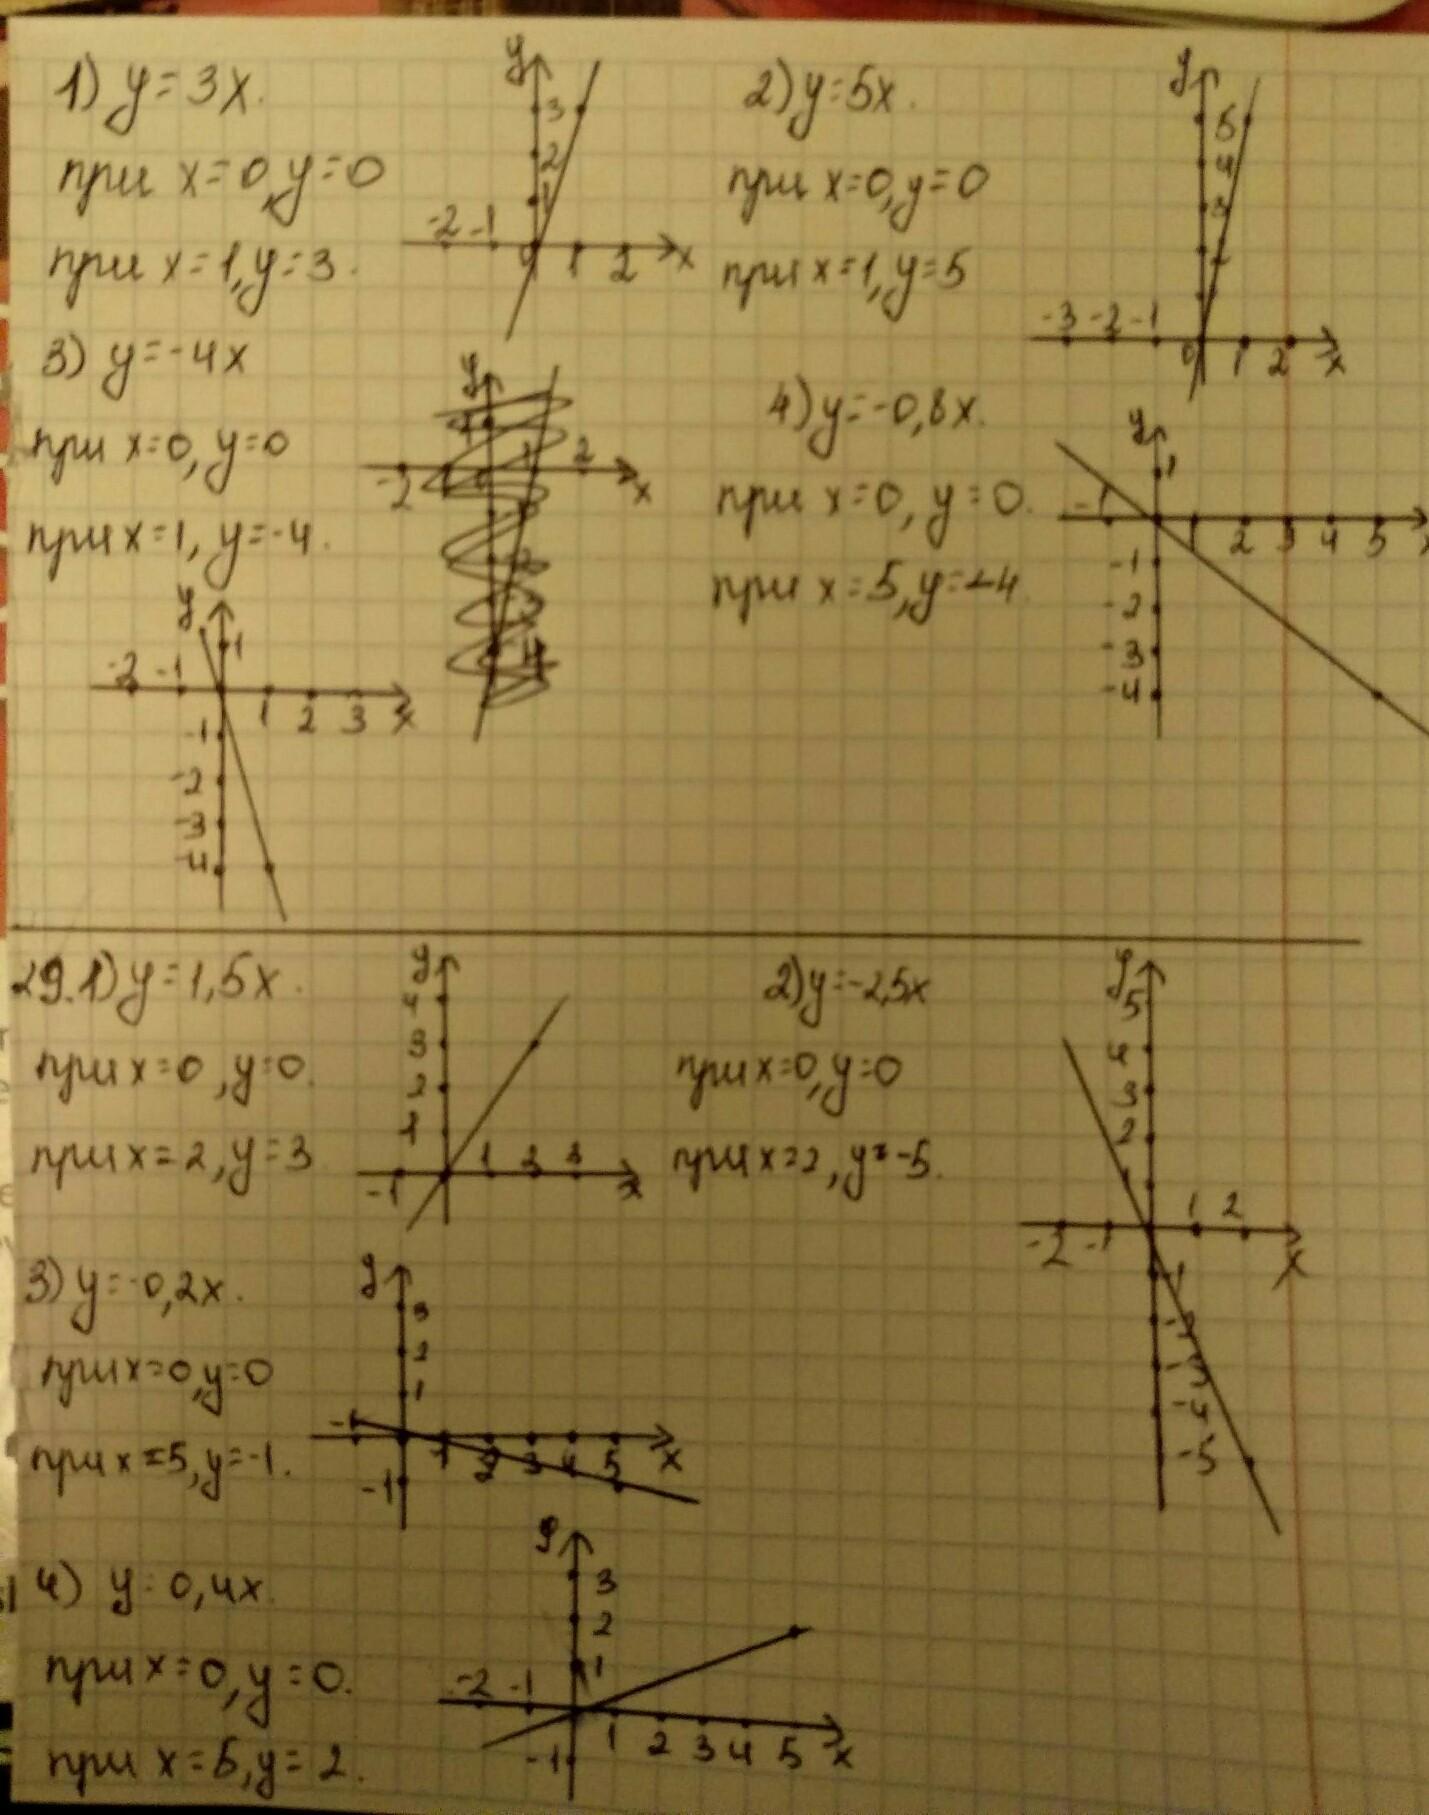 1) y=3x.
при x=0, y=0
при x=1, y=3.
y
3
2
1
-2 -1 0 1 2 x
2) y=5x.
при x=0, y=0
при x=1, y=5
y
5
4
3
-3 -2 -1
0 1 2 x
3) y=-4x
при x=0, y=0
при x=1, y=-4.
y
-2 2 x
y
1
-2 -1
1 2 3 x
-1
-2
-3
-4
4) y=-0,8x.
при x=0, y=0.
при x=5, y=-4.
y
1
-1
1 2 3 4 5
-1
-2
-3
-4
29. 1) y=1,5x.
при x=0, y=0.
при x=2, y=3
y
4
3
2
1
-1 1 2 3 x
2) y=-2,5x
при x=0, y=0
при x=2, y=-5.
y
5
4
3
2
1 2
-2 -1 x
-1
-2
-3
-4
-5
3) y=-0,2x.
при x=0, y=0
при x=5, y=-1.
y
3
2
1
-1
1 2 3 4 5 x
-1
4) y=0,4x.
при x=0, y=0.
при x=5, y=2.
y
3
2
1
-2 -1
1 2 3 4 5 x
-1